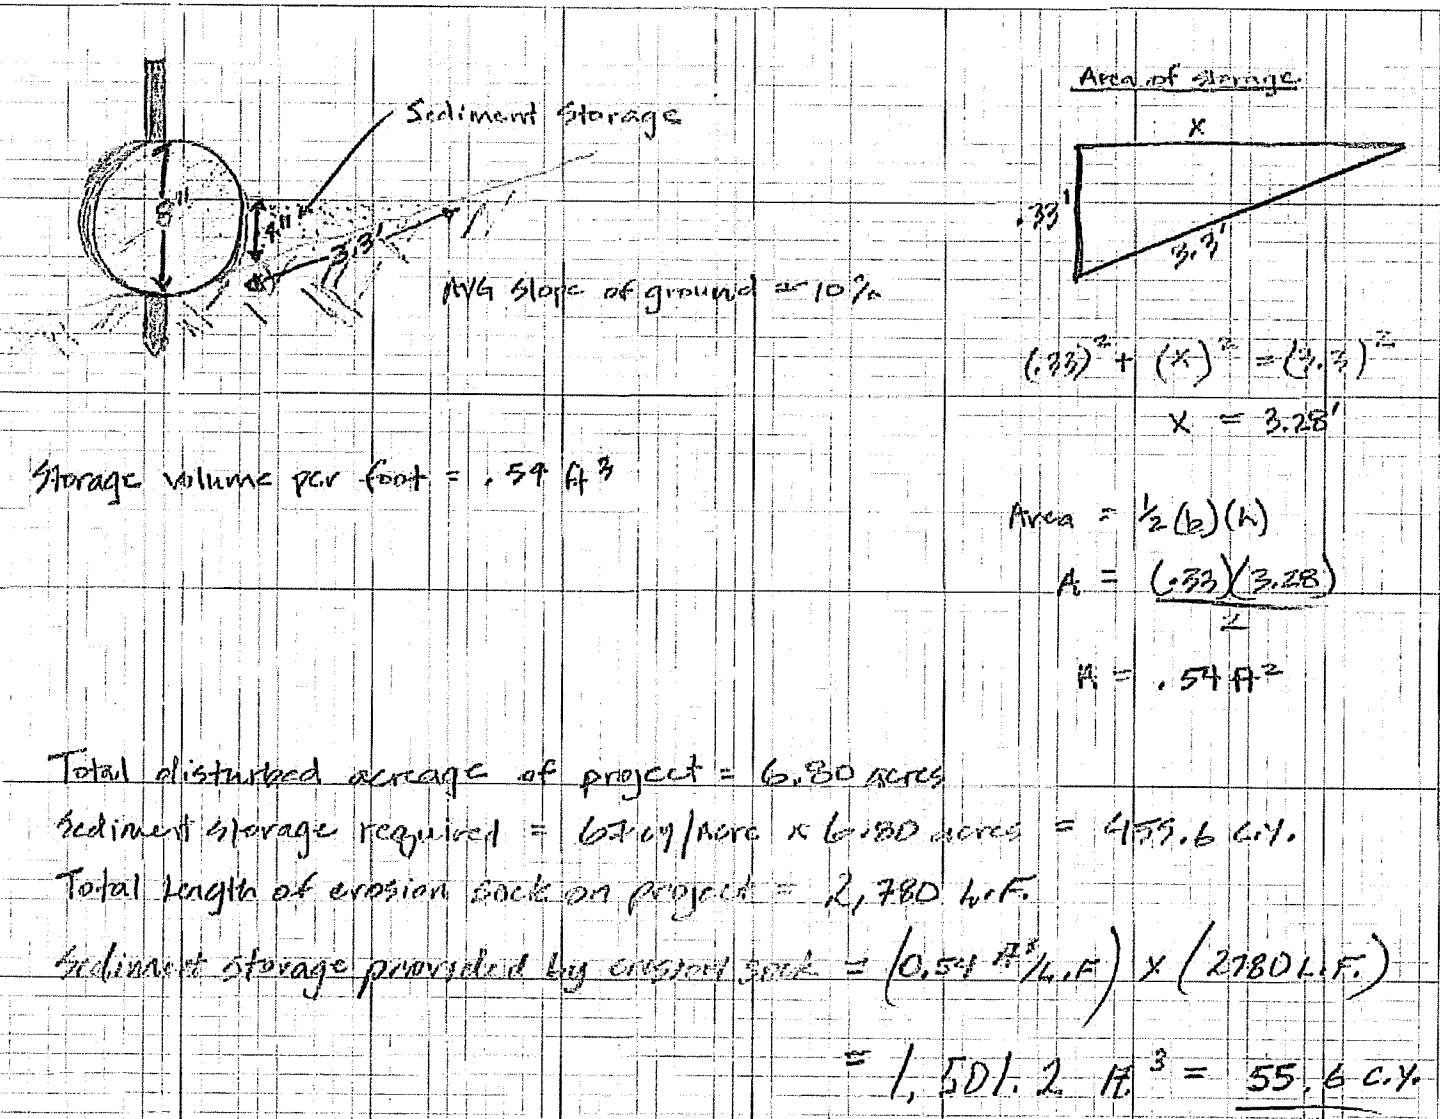 Area of storage
Sediment Storage
X
8"
4"
3.3'
.33'
3.3'
AVG Slope of ground = 10%
(.33)² + (x)² = (3.3)²
X = 3.28'
Storage volume per foot = .54 ft³
Area = ½(b)(h)
A = (.33)(3.28)
2
A = .54 ft²
Total disturbed acreage of project = 6.80 acres
Sediment storage required = 67 cy/Acre × 6.80 acres = 455.6 C.Y.
Total Length of erosion sock on project = 2,780 L.F.
Sediment storage provided by erosion sock = (0.54 ft³/L.F.) X (2780 L.F.)
= 1,501.2 ft³ = 55.6 C.Y.